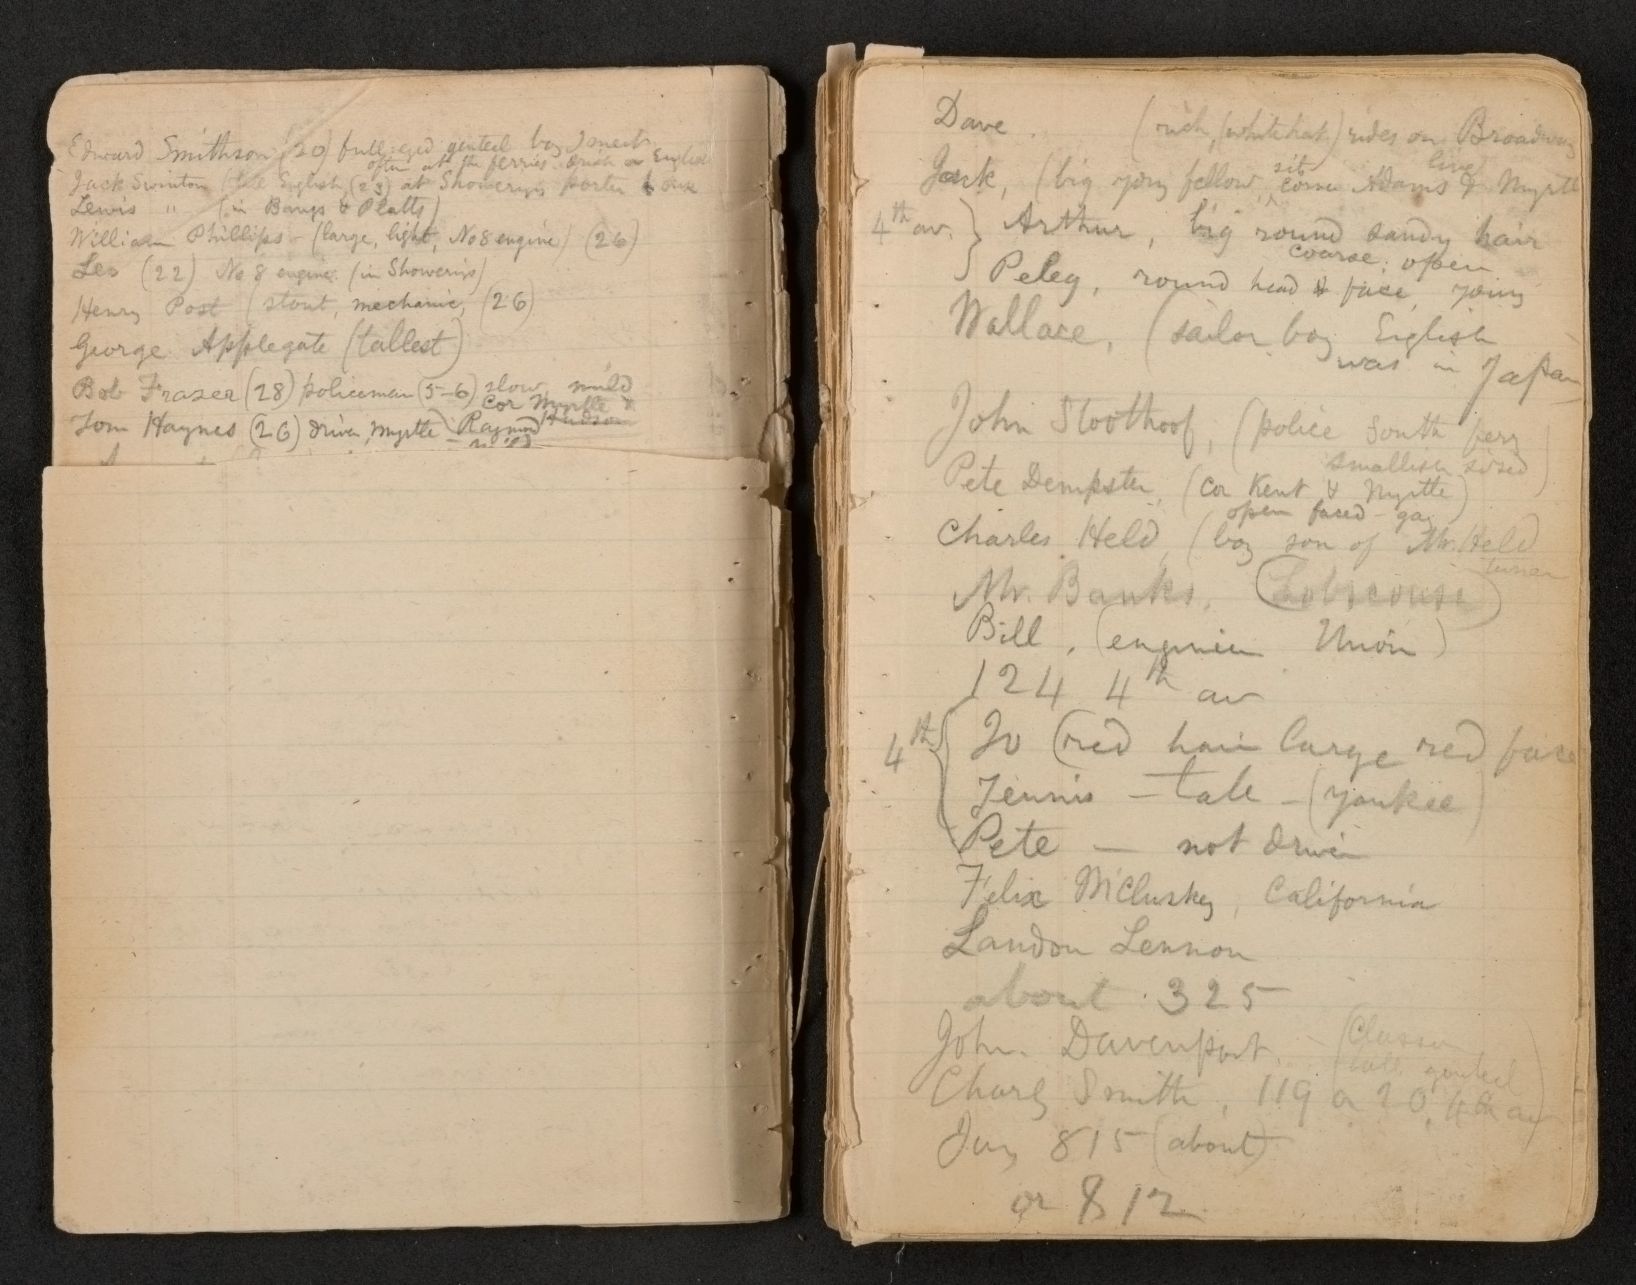 Edward Smithson (20) full-eyed genteel boy I meet
often at the ferries
Jack Swinton (full English (23) at Showerings porter house
Lewis " (in Bangs & Platts)
William Phillips – (large, light, No 8 engine) (26)
Les (22) No 8 engine (in Showerings)
Henry Post (stout, mechanic, (26)
George Applegate (tallest)
Bob Frazer (28) policeman (5–6) slow, mild
cor Myrtle &
Tom Haynes (26) driver, Myrtle – Raymond Hudson
Dave. (rich, (white hat) rides on Broadway
Jack, (big young fellow, sits corner Adams & Myrtle
live
4th av. } Arthur, big round sandy hair
coarse, open
Peleg, round head & face, young
Wallace, (sailor boy English
was in Japan
John Stoothoof, (police South ferry
smallish sized)
Pete Dempster, (cor Kent & Myrtle)
open faced – gay
Charles Held, (boy son of Mr. Held
turner
Mr. Banks, (Lobscouse)
Bill, (engineer Union)
124 4th av
4th { Jo (red hair large red face
Tennis – tall – (yankee)
Pete — not driver
Felix McClusky, California
Landon Lennon
about 325
John. Davenport.
(tall genteel)
Charley Smith, 119 or 20, 4th av
815 (about)
or 812